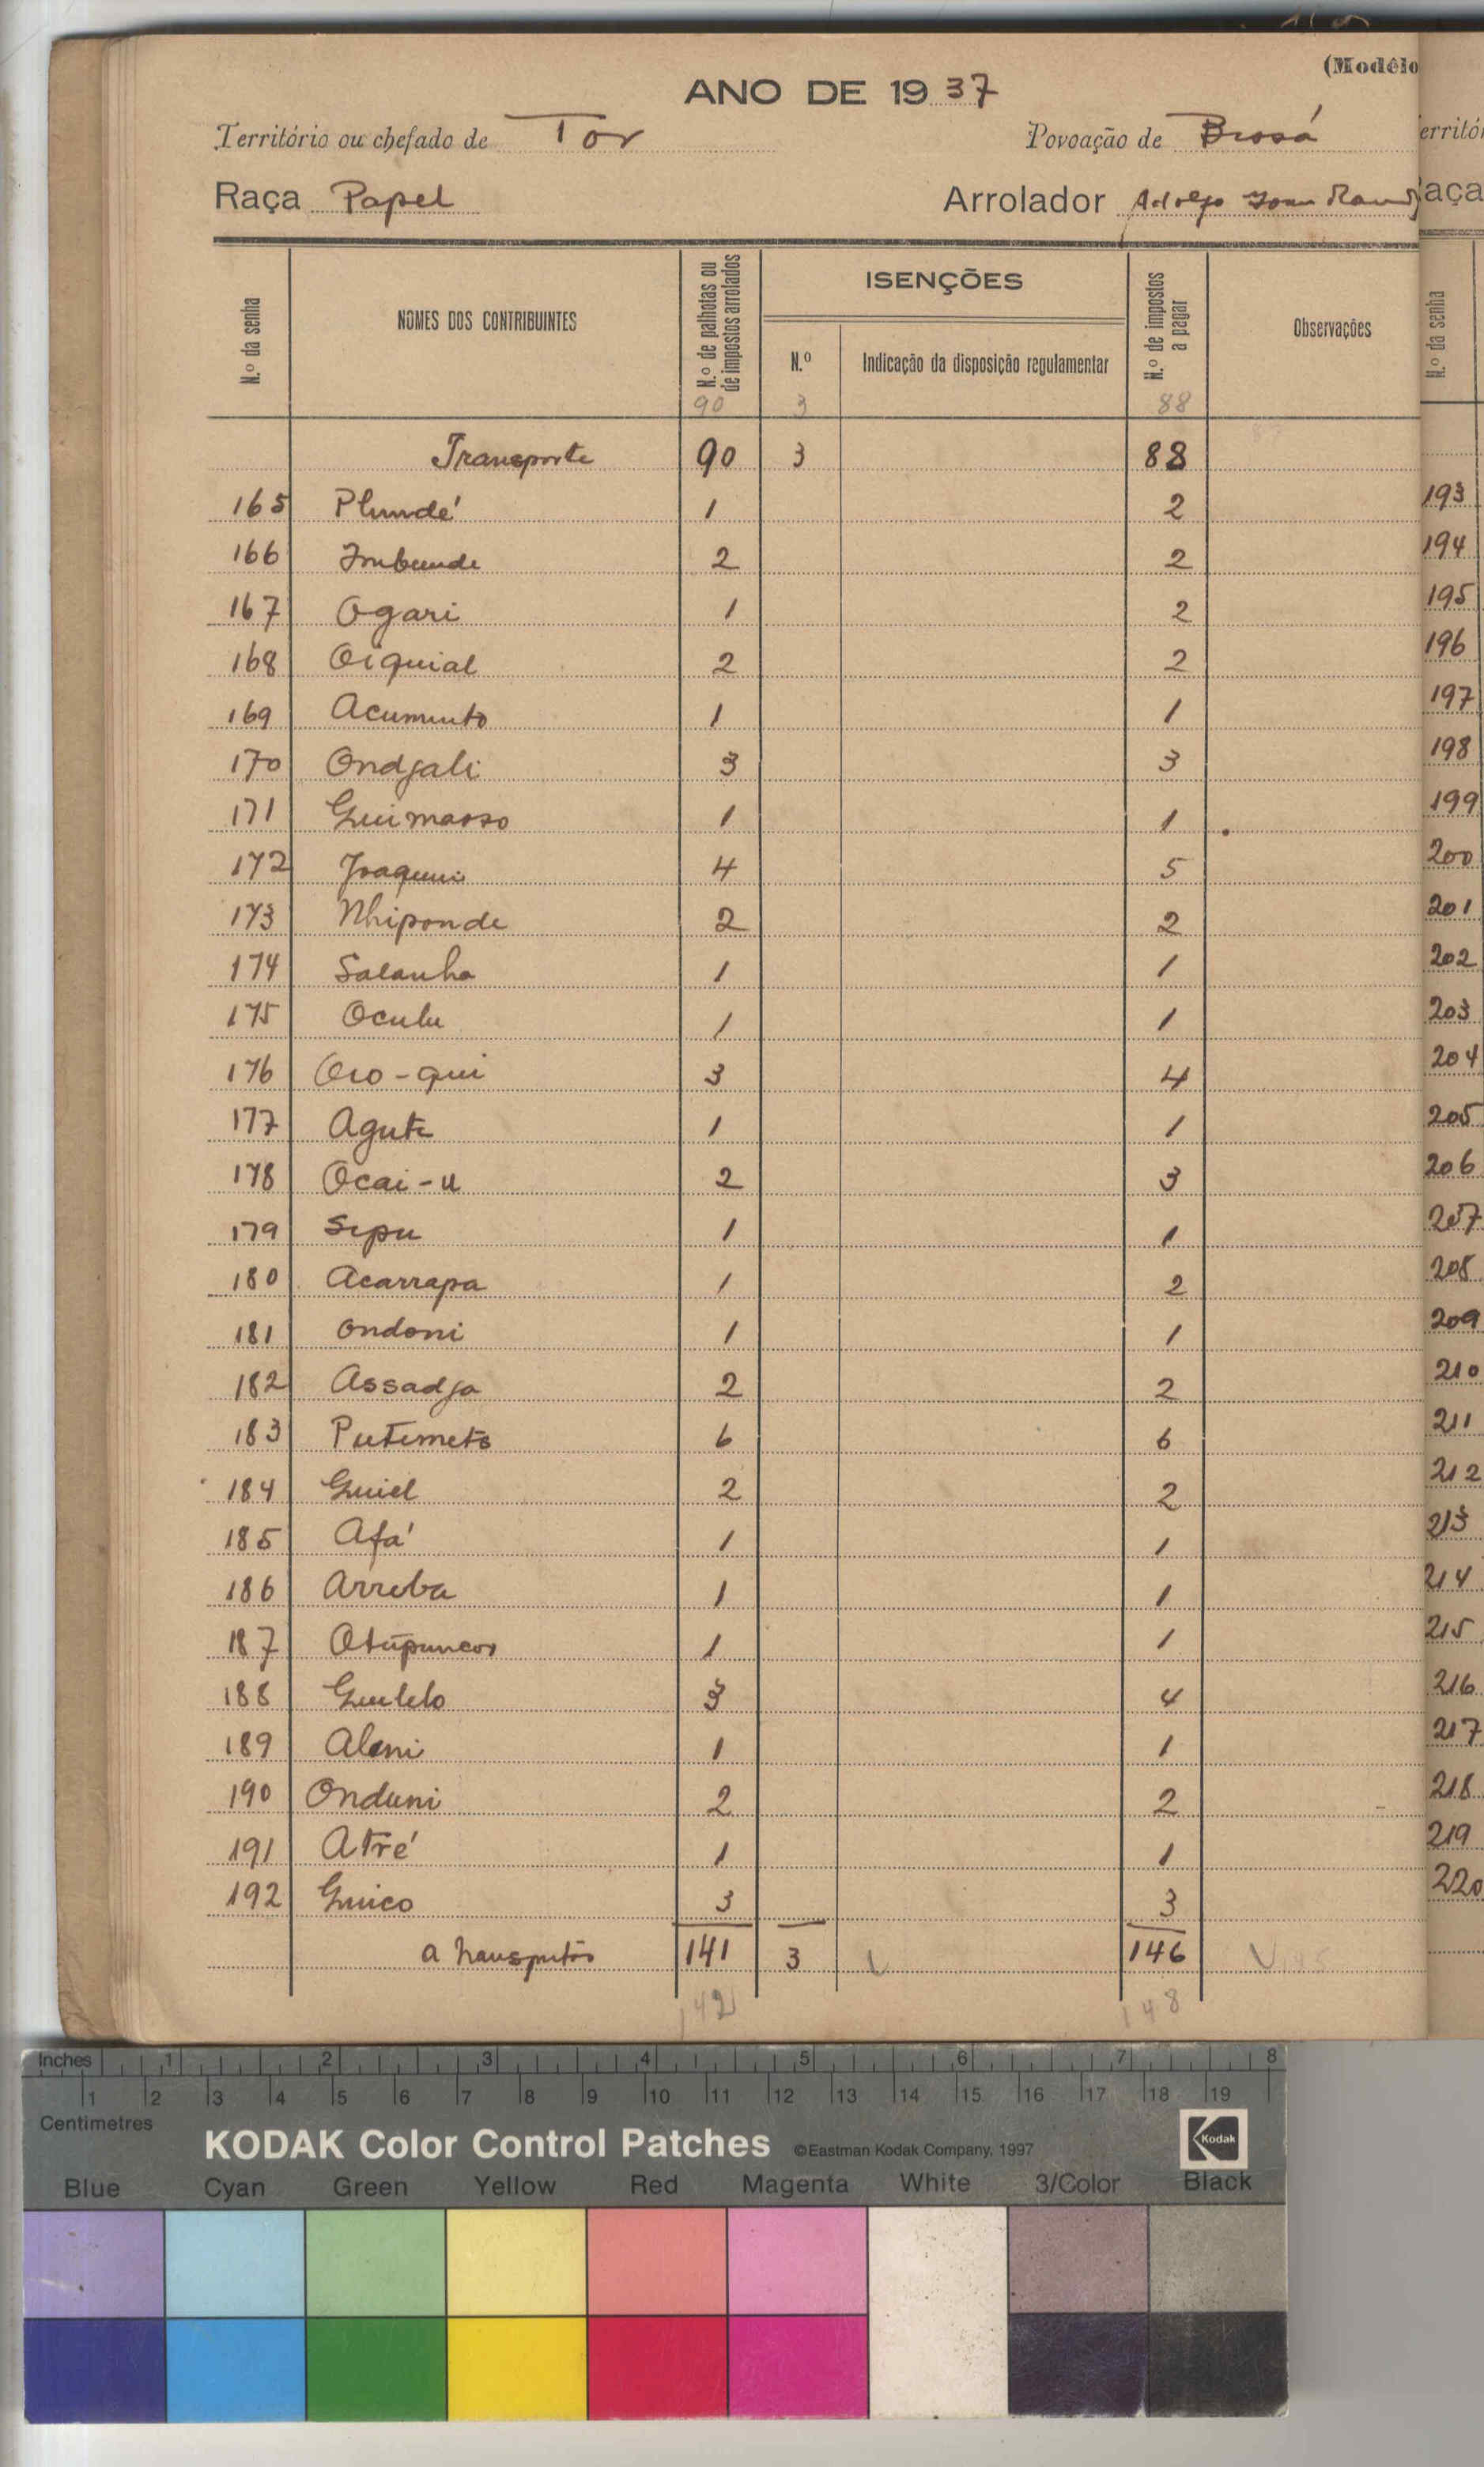 (Modêlo
ANO DE 1937
Território ou chefado de Tor Povoação de Brosá
Raça Papel Arrolador Adolfo
N.º da senha NOMES DOS CONTRIBUINTES N.º de palhotas ou de impostos arrolados ISENÇÕES N.º de impostos a pagar Observações
N.º Indicação da disposição regulamentar
90 3 88
Transporte 90 3 88
165 Plundé 1 2
166 Imbunde 2 2
167 Ogari 1 2
168 Oiquial 2 2
169 Acuminto 1 1
170 Ondjali 3 3
171 Guimasso 1 1
172 Joaquim 4 5
173 Nhiponde 2 2
174 Salanha 1 1
175 Oculu 1 1
176 Oro-qui 3 4
177 Agute 1 1
178 Ocai-u 2 3
179 Sepu 1 1
180 Acarrapa 1 2
181 Ondoni 1 1
182 Assadja 2 2
183 Putimeto 6 6
184 Guiel 2 2
185 Afá 1 1
186 Arruba 1 1
187 1 1
188 Gulelo 3 4
189 Aleni 1 1
190 Onduni 2 2
191 Atré 1 1
192 Guico 3 3
a 141 3 146
142 148
erritó
aça
N.º da senha
193
194
195
196
197
198
199
200
201
202
203
204
205
206
207
208
209
210
211
212
213
214
215
216
217
218
219
220
Inches 1 2 3 4 5 6 7 8
1 2 3 4 5 6 7 8 9 10 11 12 13 14 15 16 17 18 19
Centimetres
KODAK Color Control Patches ©Eastman Kodak Company, 1997 Kodak
Blue Cyan Green Yellow Red Magenta White 3/Color Black